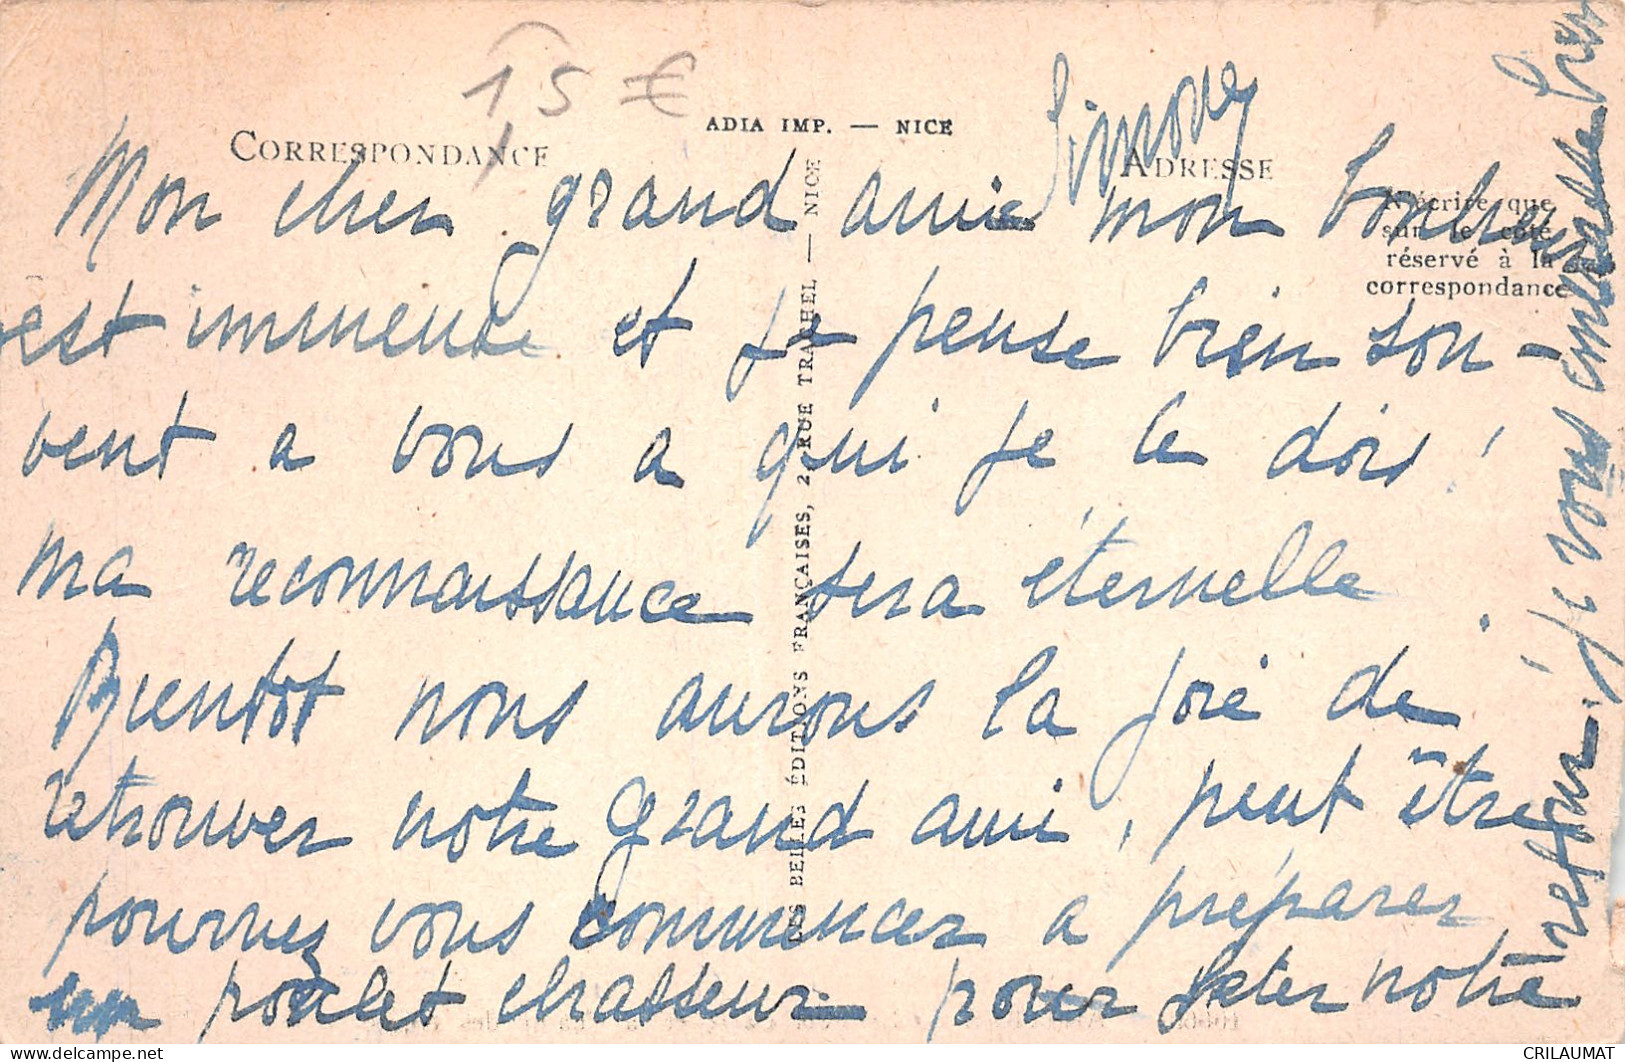 15 €
ADIA IMP. — NICE
CORRESPONDANCE
ADRESSE
N'écrire que
sur le côté
réservé à la
correspondance
DES BELLES ÉDITIONS FRANÇAISES, 2, RUE TRACHEL — NICE
Mon cher grand ami mon bonheur
est immense et je pense bien sou-
vent a vous a qui je le dois !
ma reconnaissance sera éternelle .
Bientot nous aurons la joie de
retrouver notre grand ami, peut être
pourrez vous commencer a préparer
un poulet chasseur pour feter notre
retour. je vous embrasse
Simone
CRILAUMAT